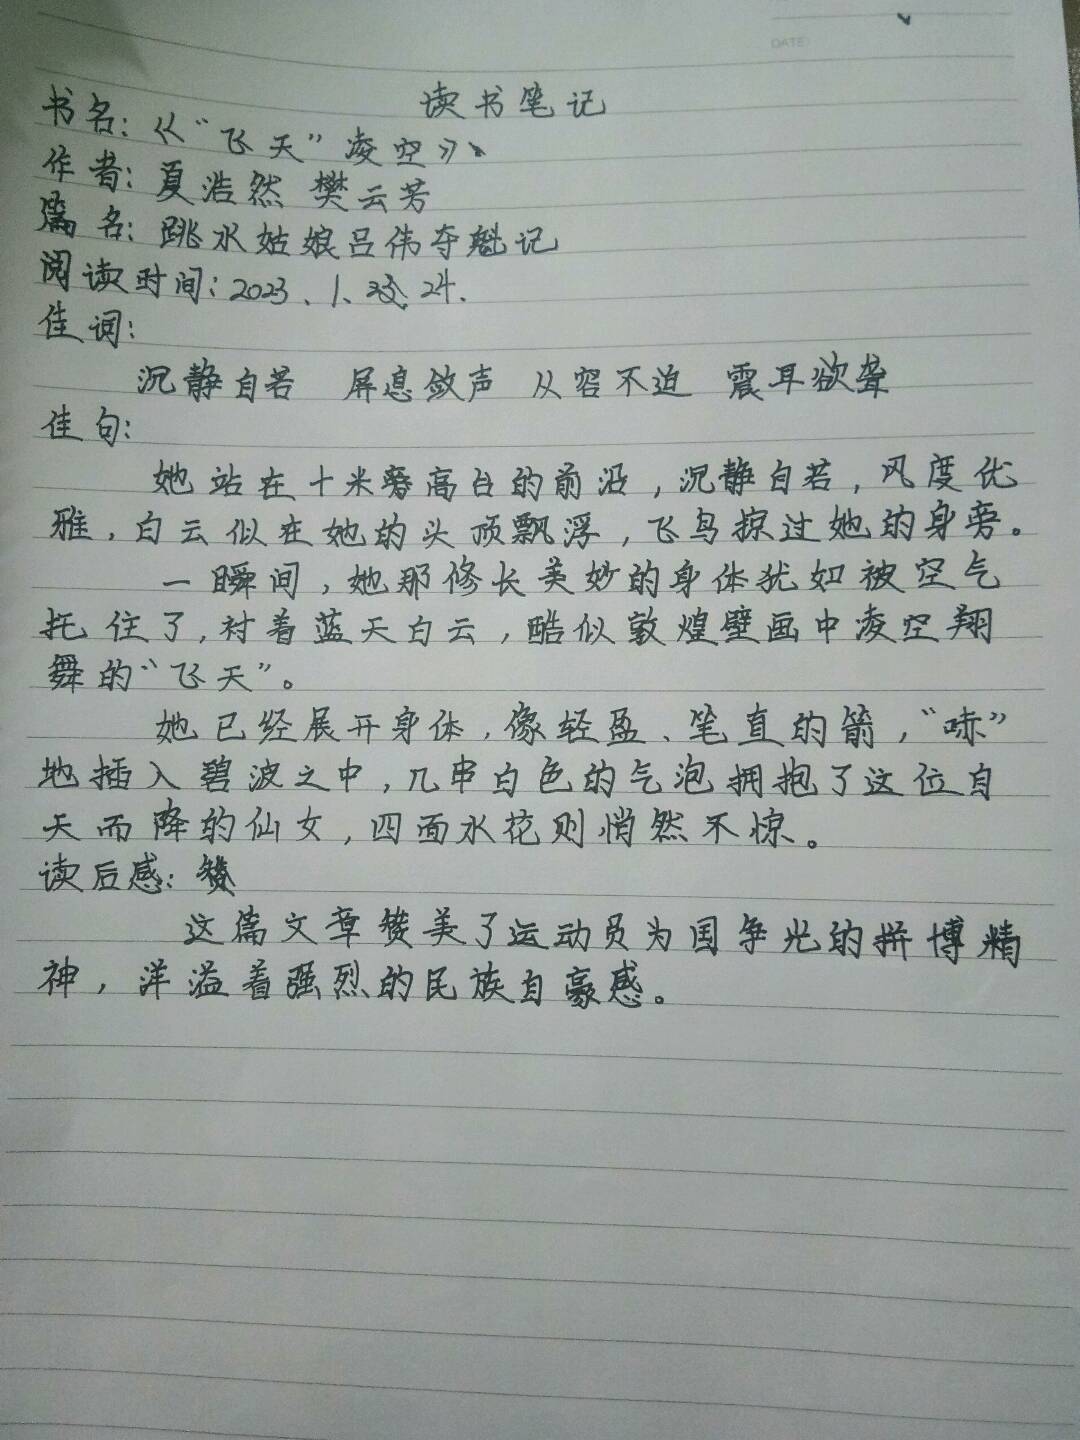 DATE
读书笔记
书名：《“飞天”凌空》、
作者：夏浩然 樊云芳
篇名：跳水姑娘吕伟夺魁记
阅读时间：2023、1、24.
佳词：
沉静自若 屏息敛声 从容不迫 震耳欲聋
佳句：
她站在十米高台的前沿，沉静自若，风度优
雅，白云似在她的头顶飘浮，飞鸟掠过她的身旁。
一瞬间，她那修长美妙的身体犹如被空气
托住了，衬着蓝天白云，酷似敦煌壁画中凌空翔
舞的“飞天”。
她已经展开身体，像轻盈、笔直的箭，“哧”
地插入碧波之中，几串白色的气泡拥抱了这位自
天而降的仙女，四面水花则悄然不惊。
读后感：
这篇文章赞美了运动员为国争光的拼博精
神，洋溢着强烈的民族自豪感。